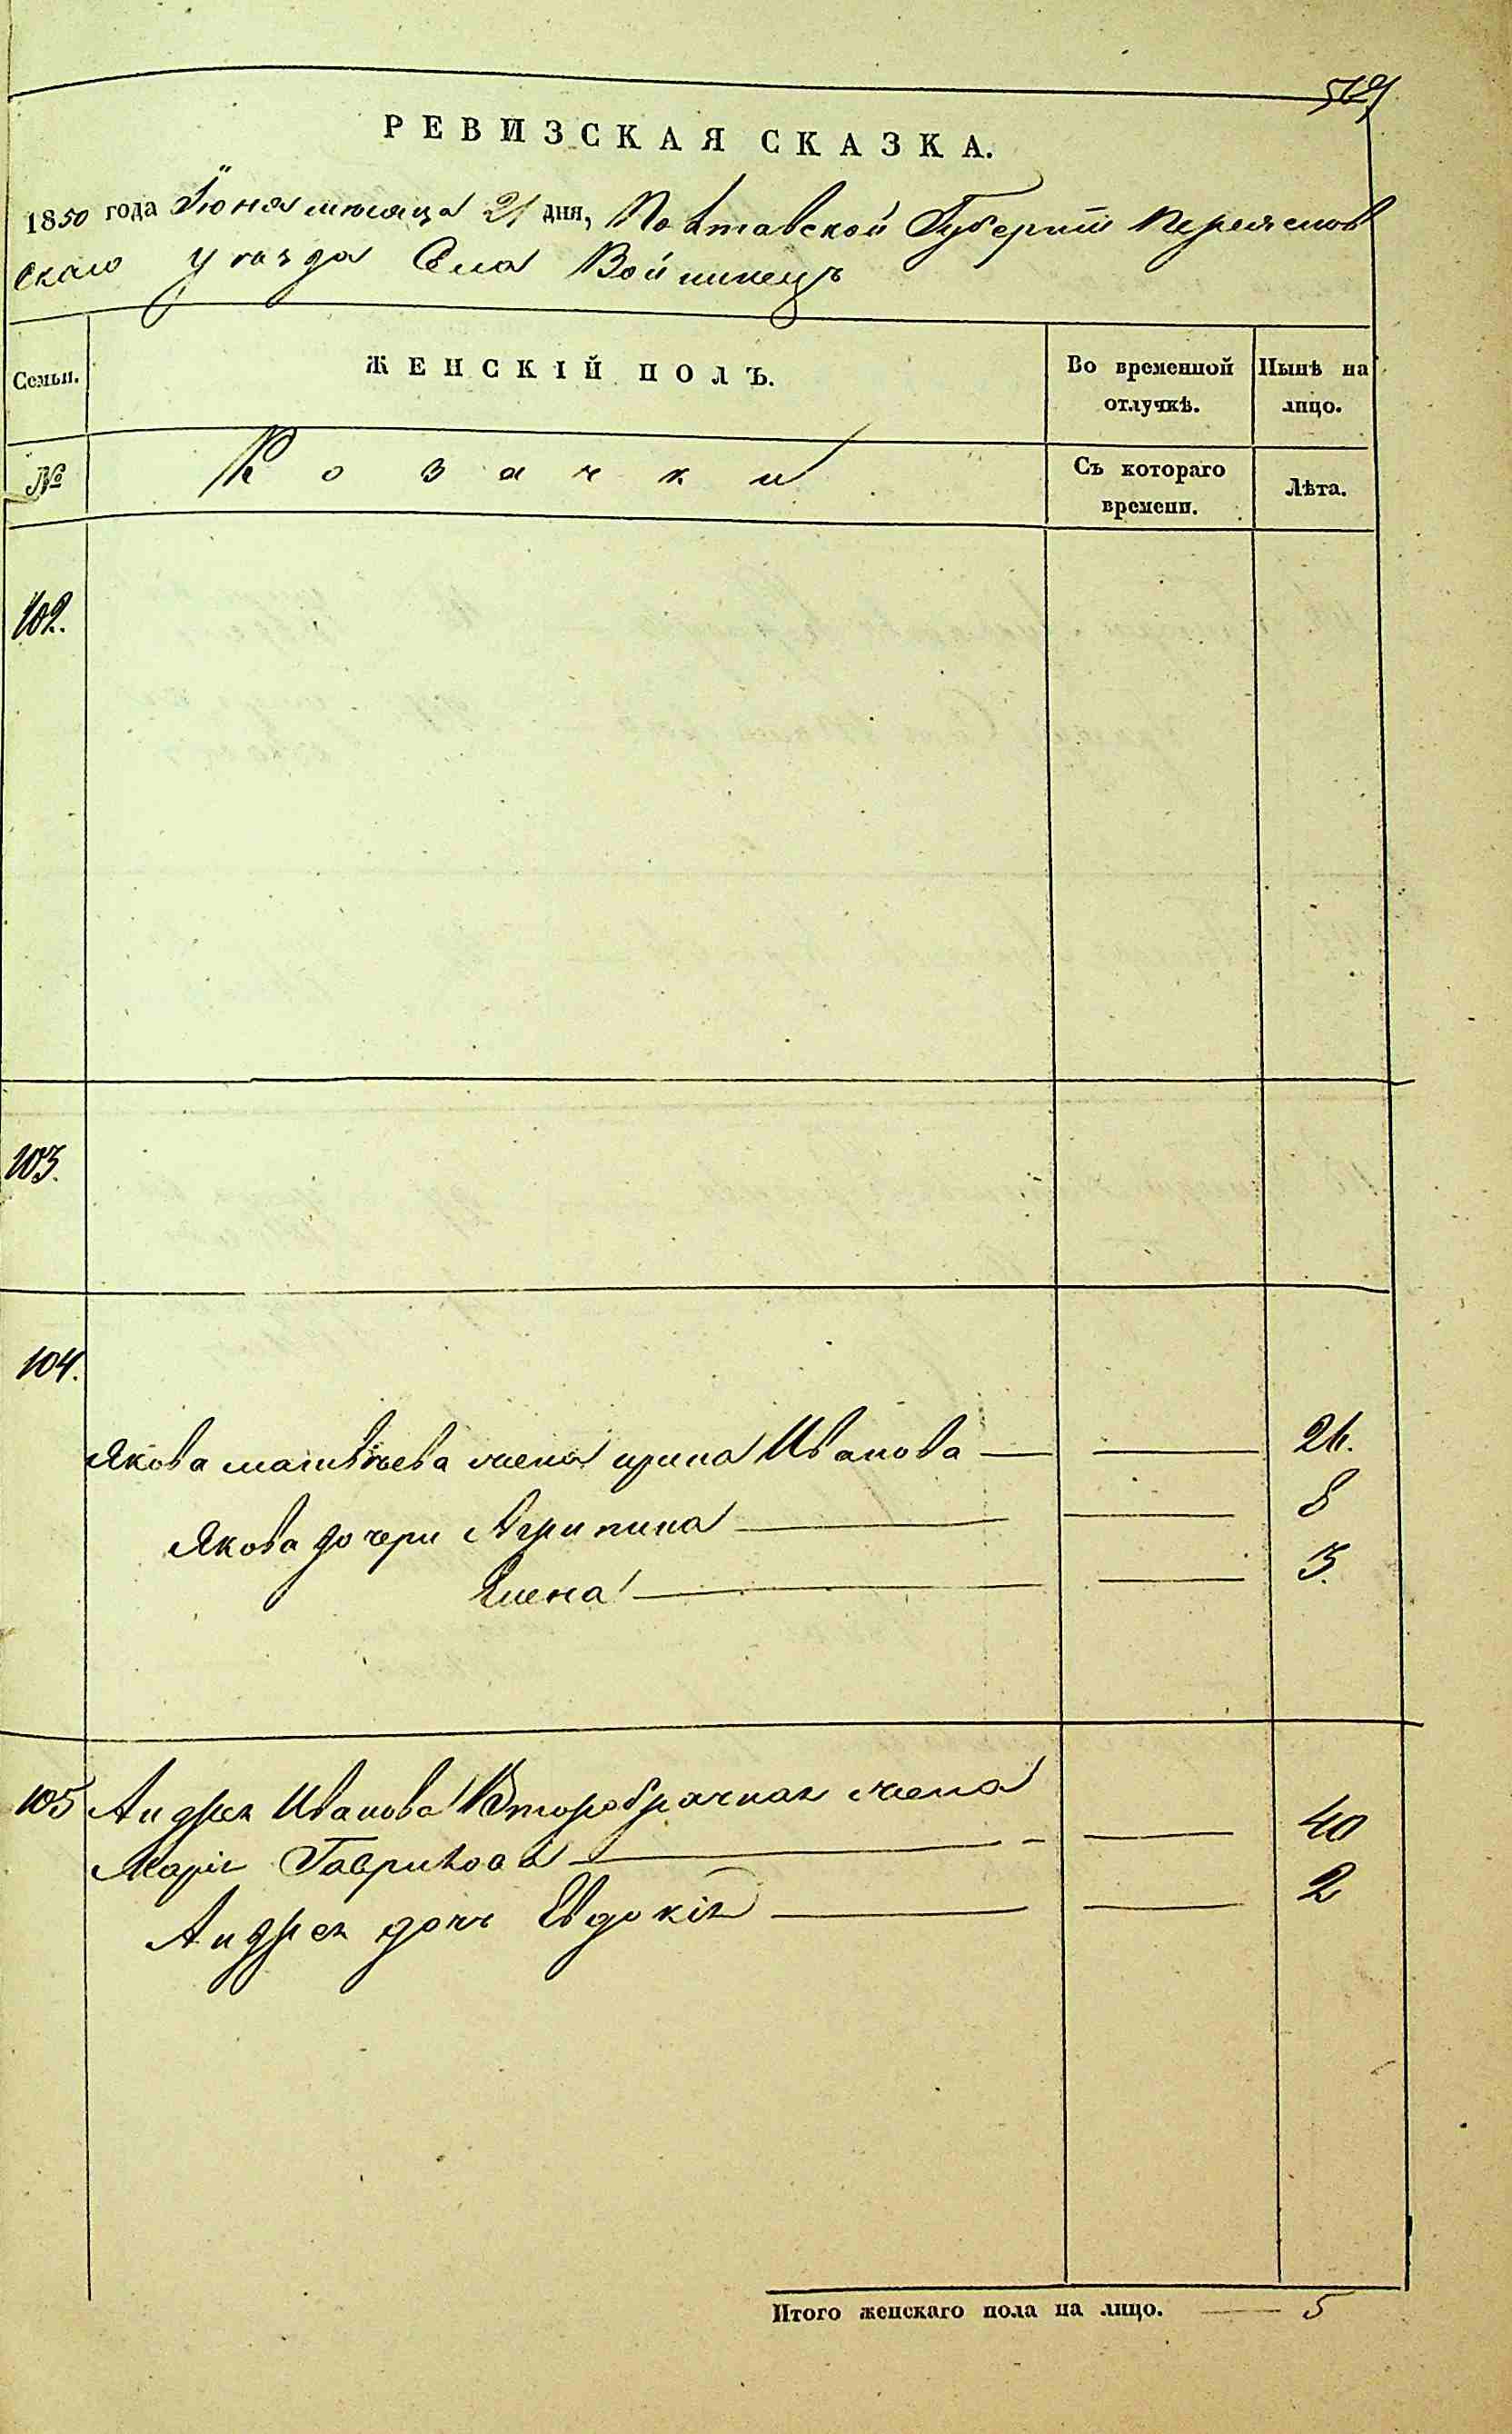 РЕВИЗСКАЯ СКАЗКА.
1850 года Іюня мѣсяца 21 дня, Полтавской Губерніи Переяслов
скаго уѣзда Села Войнинецъ
Семьи.
ЖЕНСКІЙ ПОЛЪ.
Во временной отлучкѣ.
Нынѣ на лицо.
№
Козачки
Съ котораго времени.
Лѣта.
102.
103.
104.
Якова матвѣева жена ирина Иванова — — 26.
Якова дочери Агрипина — — 8
Елена — — 3.
105 Андрея Иванова Второбрачная жена
Марія Гаврилова — — 40
Андрея дочь Евдокія — — 2
Итого женскаго пола на лицо. — 5